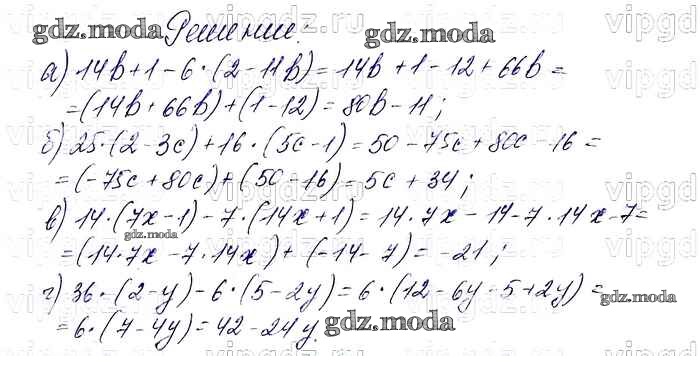 Решение.
а) 14b+1-6·(2-11b)=14b+1-12+66b=
=(14b+66b)+(1-12)=80b-11;
б) 25·(2-3c)+16·(5c-1)=50-75c+80c-16=
=(-75c+80c)+(50-16)=5c+34;
в) 14·(7x-1)-7·(14x+1)=14·7x-14-7·14x-7=
=(14·7x-7·14x)+(-14-7)=-21;
г) 36·(2-y)-6·(5-2y)=6·(12-6y-5+2y)=
=6·(7-4y)=42-24y.
gdz.moda
gdz.moda
gdz.moda
gdz.moda
gdz.moda